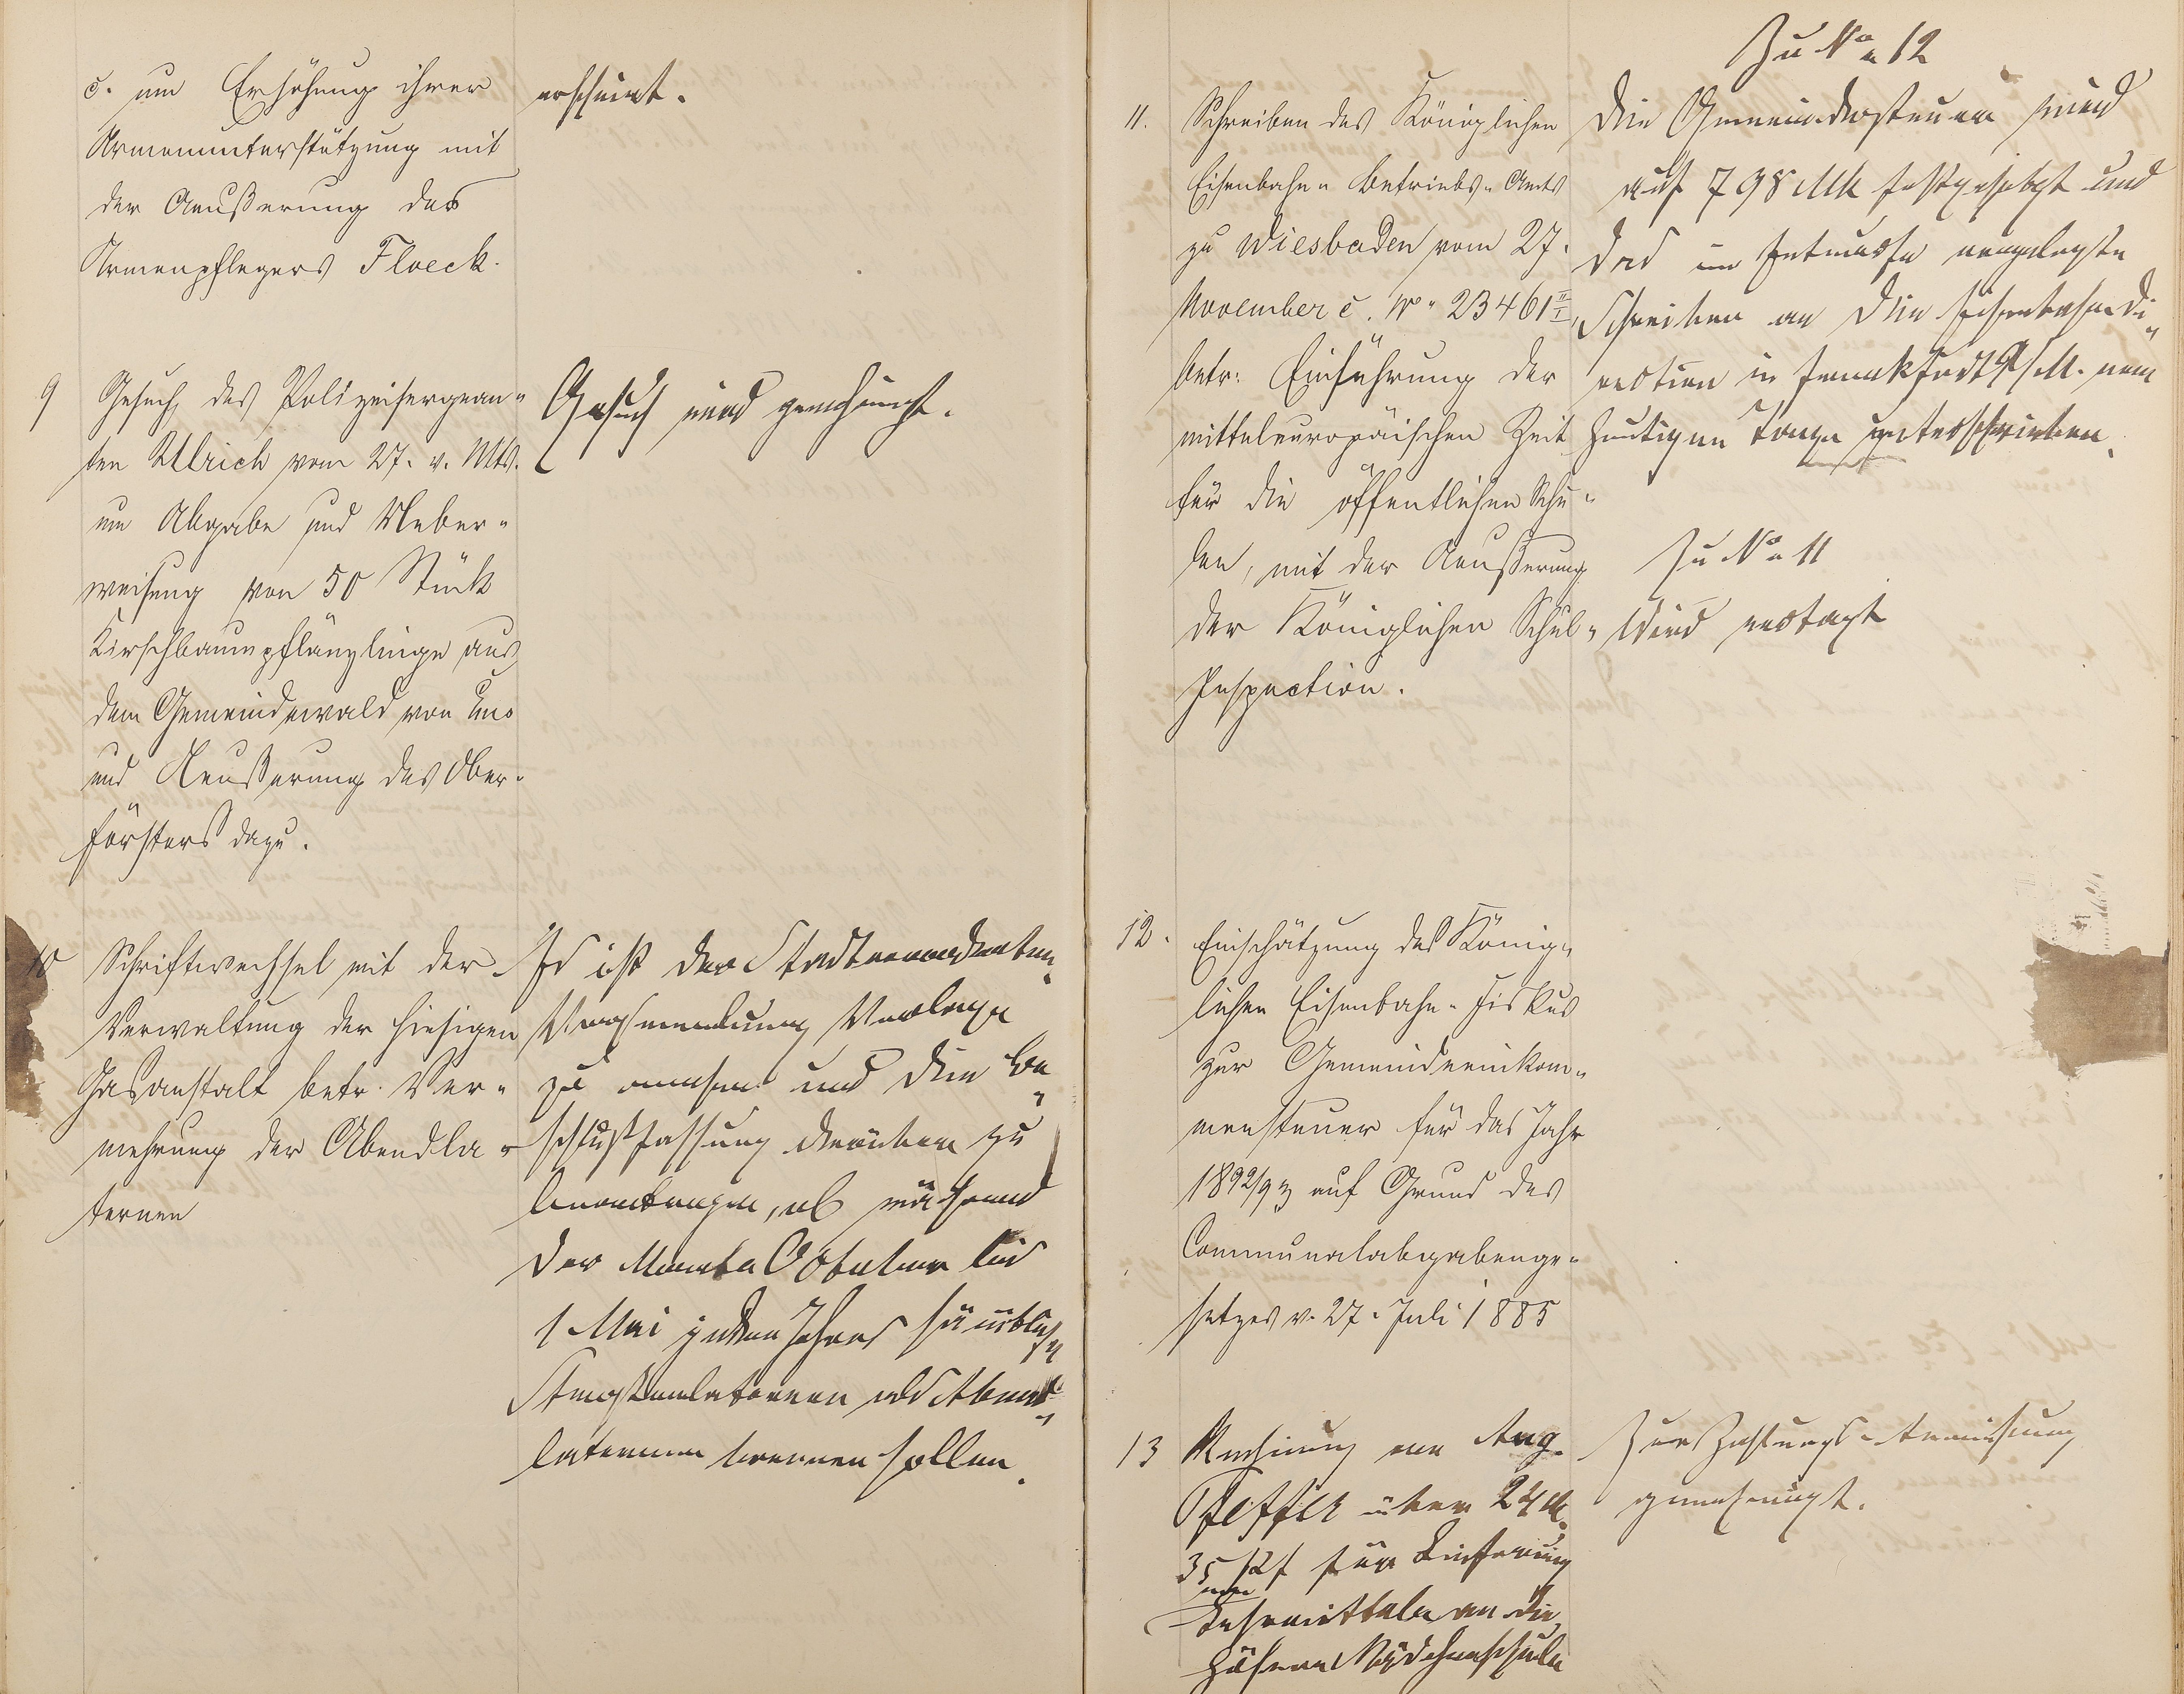 c. um Erhöhung ihrer
Armenunterstützung mit
der Aeußerung des
Armenpflegers Floeck.
erscheint.
9 Gesuch des Polizeisergean-
ten Ulrich vom 27. v. Mts.
um Abgabe und Ueber-
weisung von 50 Stück
Kirschbaumpflänzlinge aus
dem Gemeindewald von Ems
und Aeußerung des Ober-
försters dazu.
Gesuch wird genehmigt.
10 Schriftwechsel mit der
Verwaltung der hiesigen
Gasanstalt betr. Ver-
mehrung der Abendla-
ternen
Es ist der Stadtverordneten-
Versammlung Vorlage
zu machen und die Be-
schlußfassung darüber zu
beantragen, ob während
der Monate Oktober bis
1 Mai jeden Jahres sämtliche
Straßenlaternen als Abend-
laternen brennen sollen.
11. Schreiben des Königlichen
Eisenbahn-Betriebs-Amts
zu Wiesbaden vom 27.
November c. No 23461 II/I,
betr: Einführung der
mitteleuropäischen Zeit
für die öffentlichen Schu-
len, mit der Aeußerung
der Königlichen Schul-
Inspection.
Zu No 12
Die Gemeindesteuer wird
auf 798 Mk festgesetzt und
das im Entwurfe vorgelegte
Schreiben an die Eisenbahndi-
rection in Frankfurt a/M. vom
heutigen Tage unterschrieben.
Zu No 11
Wird vertagt
12. Einschätzung des König-
lichen Eisenbahn-Fiskus
zur Gemeindeeinkom-
mensteuer für das Jahr
1892/93 auf Grund des
Communalabgabenge-
setzes v. 27. Juli 1885
13 Rechnung von Aug.
Pfeffer über 24 M.
35 Pf für Lieferung
von
Lehrmitteln an die
höhere Mädchenschule
Zur Zahlungs-Anweisung
genehmigt.